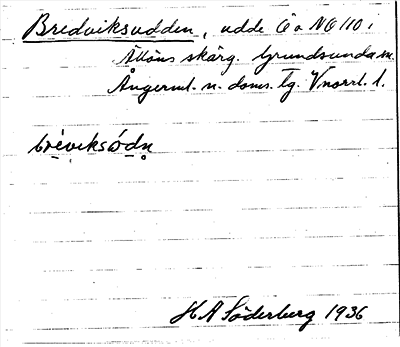 Bredviksudden, udde Ö o NO 110 i
skärg. Grundsunda sn.
Ångerml. n. doms. tg. Vnorrl. l.
brèviksódn̥
H A Söderberg 1936